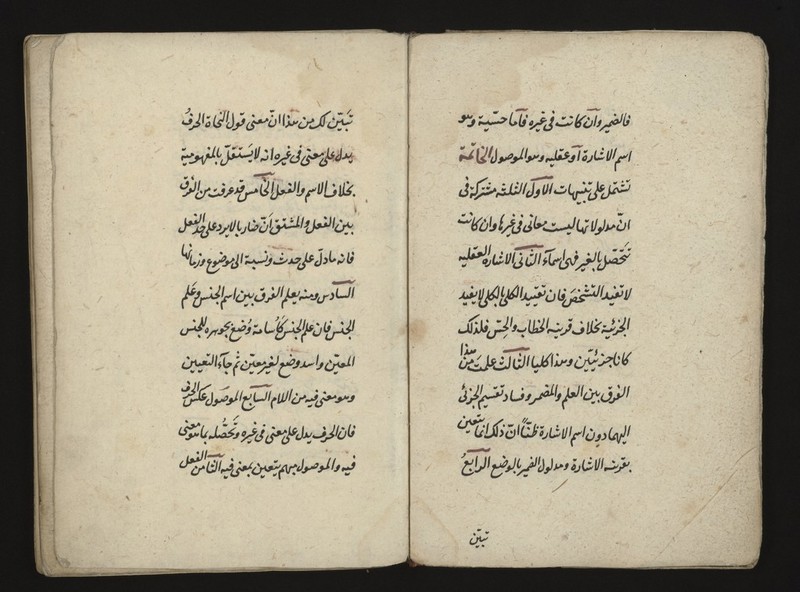 فالضمير وان كانت في غيره فاما حسية وهو
اسم الاشارة او عقليه وهو الموصول الخاتمة
تشتمل على تنبيهات الاول الثلثه مشتركة في
ان مدلولاتها ليست معاني في غيرها وان كانت
تتحصل بالغير فهي اسماء الثاني الاشاره العقليه
لا تفيد التشخص فان تقييد الكلي بالكلي لا يفيد
الجزئية بخلاف قرينه الخطاب والحس فلذلك
كانا جزئيين وهذا كليا الثالث علمت من هذا
الفرق بين العلم والمضمر وفساد تقسيم الجزئي
اليهما دون اسم الاشارة ظنًا ان ذلك انما يتعين
بقرينه الاشارة ومدلول الضمير بالوضع الرابع
تبين
تبين لك من هذا ان معنى قول النحاة الحرف
يدل على معنى في غيره انه لا يستقل بالمفهومية
بخلاف الاسم والفعل الخامس قد عرفت من الفرق
بين الفعل والمشتق ان ضاربا لا يرد على حد الفعل
فانه ما دل على حدث ونسبة الى موضوع وزمانها
السادس ومنه يعلم الفرق بين اسم الجنس وعلم
الجنس فان علم الجنس كاسامة وضع بجوهره للجنس
المعين واسد وضع لغير معين ثم جاء التعيين
وهو معنى فيه من اللام السابع الموصول عكس الحرف
فان الحرف يدل على معنى في غيره وتحصله بما هو معنى
فيه والموصول مبهم يتعين بمعنى فيه الثامن الفعل